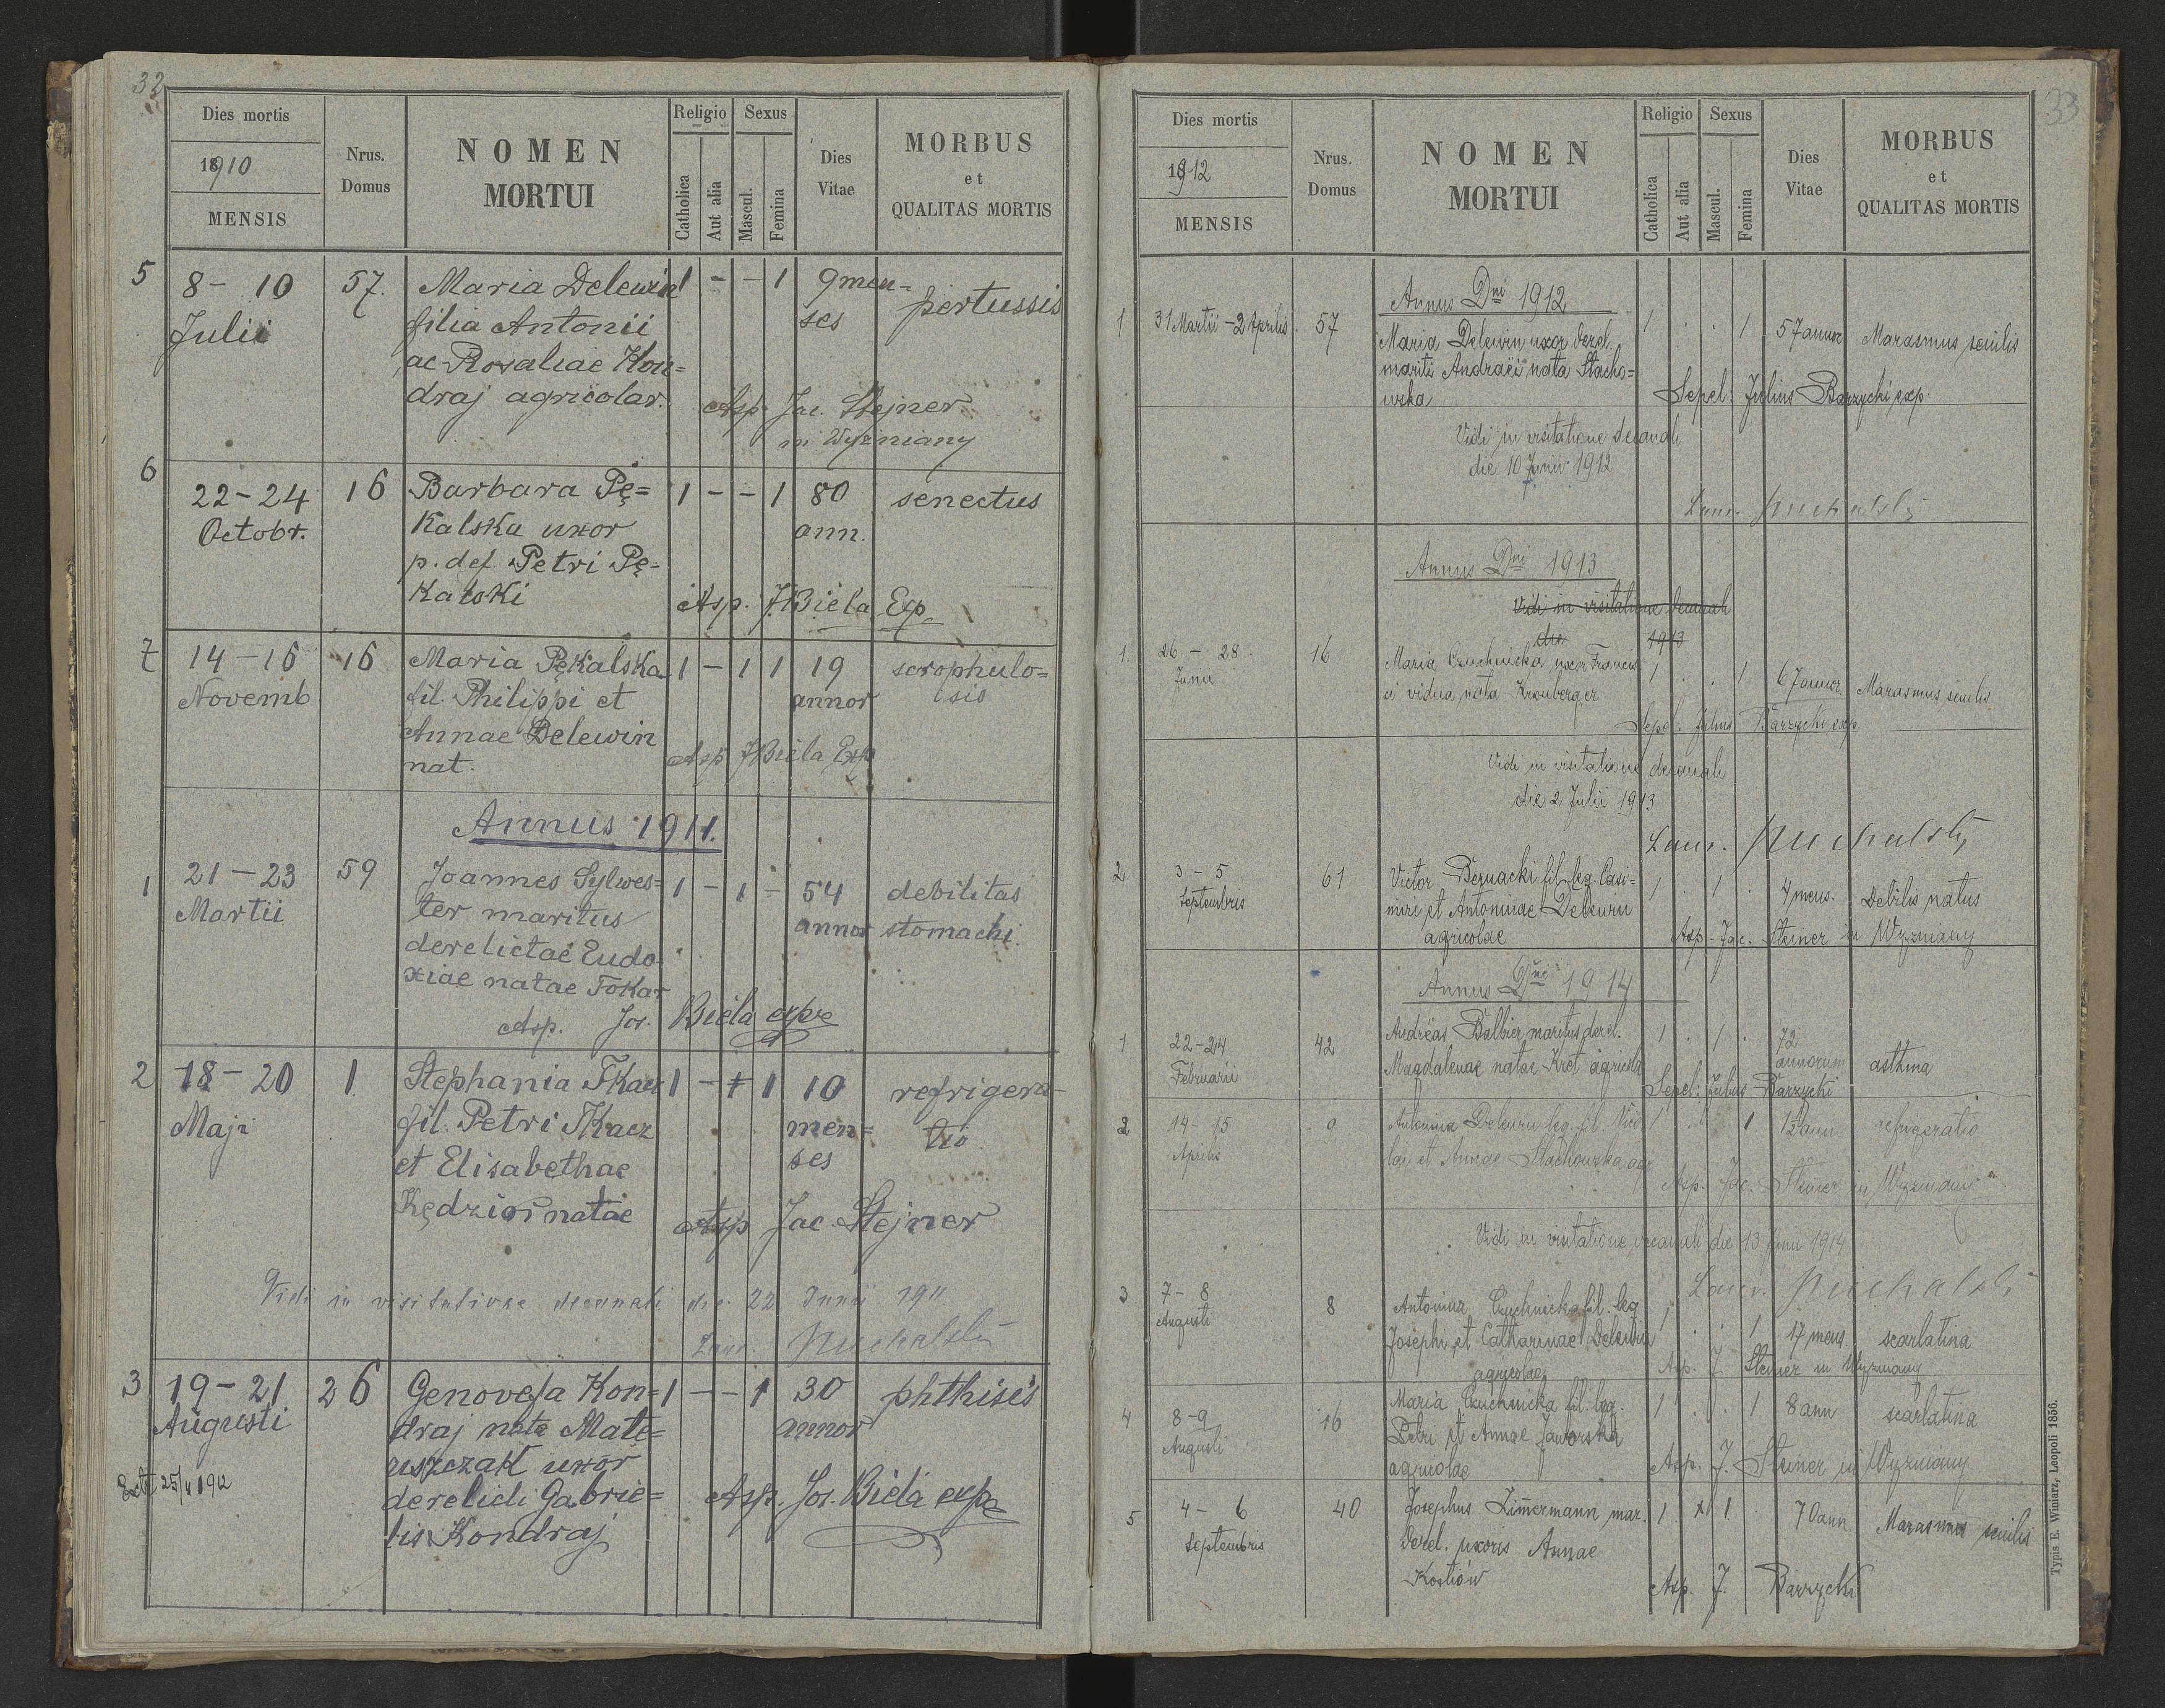 32
Dies mortis
1910
MENSIS
Nrus.
Domus
NOMEN
MORTUI
Religio
Catholica
Aut alia
Sexus
Mascul.
Femina
Dies
Vitae
MORBUS
et
QUALITAS MORTIS
5 8 - 10 57. Maria Delewin 1 - - 1 9 men= pertussis
Julii filia Antonii ses
ac Rosaliae Kon=
draj agricolar. Asp. Jac. Stejner
in Wyżniany
6 22-24 16 Barbara Pę= 1 - - 1 80 senectus
Octobr. kalska uxor ann.
p. def Petri Pę=
kalski Asp. J. Biela Exp.
7 14-16 16 Maria Pękalska 1 - 1 1 19 scrophulo=
Novemb fil. Philippi et annor sis
Annae Delewin
nat. Asp J Biela Exp
Annus 1911.
1 21-23 59 Joannes Sylwes= 1 - 1 - 54 debilitas
Martii ter maritus annor stomachi.
derelictae Eudo
xiae natae Tokar
Asp. Jos. Biela expe
2 18-20 1. Stephania Tkacz 1 - + 1 10 refrigera-
Maji fil. Petri Tkacz men= tio
et Elisabethae ses
Kędzior natae Asp Jac. Stejner
Vidi in visitatione decanali die 22 Junii 1911
Laur.
3 19-21 26 Genovefa Kon= 1 - - 1 30 phthisis
Augusti draj nata Mate= annor
uszczak uxor
derelicti Gabrie= Asp. Jos. Biela expe
lis Kondraj
25/4 1912
33
Dies mortis
1912
MENSIS
Nrus.
Domus
NOMEN
MORTUI
Religio
Catholica
Aut alia
Sexus
Mascul.
Femina
Dies
Vitae
MORBUS
et
QUALITAS MORTIS
Annus Dni 1912
1 31 Martii - 2 Aprilis 57 Maria Delewin uxor derel. 1 . . 1 57 annor Marasmus senilis
mariti Andraei nata Stacho=
wska Sepel. Julius Barzycki exp.
Vidi in visitatione decanali
die 10 Junii 1912
Laur.
Annus Dni 1913
Vidi in visitatione decanali
die 1913
1. 26 - 28 16 Maria Czuchnicka uxor Francis 1 . . 1 67 annor. Marasmus senilis
Junii ci vidua, nata Kronberger
Sepel. Julius Barzycki exp.
Vidi in visitatione decanali
die 2 Julii 1913
Laur.
2 3 - 5 61 Victor Bernacki fil. leg. Casi= 1 . 1 . 4 mens. Debilis natus
Septembris miri et Antoninae Delewin
agricolae Asp. Jac. Steiner in Wyzniany
Annus Dni 1914
1 22-24 42 Andreas Balbier maritus derel. 1 . 1 . 72
Februarii Magdalenae natae Kret agricola annorum asthma
Sepel. Julius Barzycki
2 14-15 9 Antonina Delewin leg. fil. Nico 1 . . 1 ann refrigeratio
Aprilis lai et Annae Stachowska agr
Asp. Jac. Steiner in Wyzniany
Vidi in visitatione decanali die 13 Junii 1914
Laur.
3 7 - 8 8 Antonina Czuchnicka fil. leg. 1 . . 1 17 mens. scarlatina
Augusti Josephi et Catharinae Delewin
agricolae Asp. J. Steiner in Wyzniany
4 8-9 16 Maria Czuchnicka fil. leg. 1 . . 1 8 ann scarlatina
Augusti Petri et Annae Jaworska
agricolae Asp. J. Steiner in Wyzniany
5 4 - 6 40 Josephus Zimermann mar. 1 1 70 ann Marasmus senilis
Septembris Derel. uxoris Annae
Kostiów Asp. J. Barzycki
Typis E. Winiarz, Leopoli 1856.